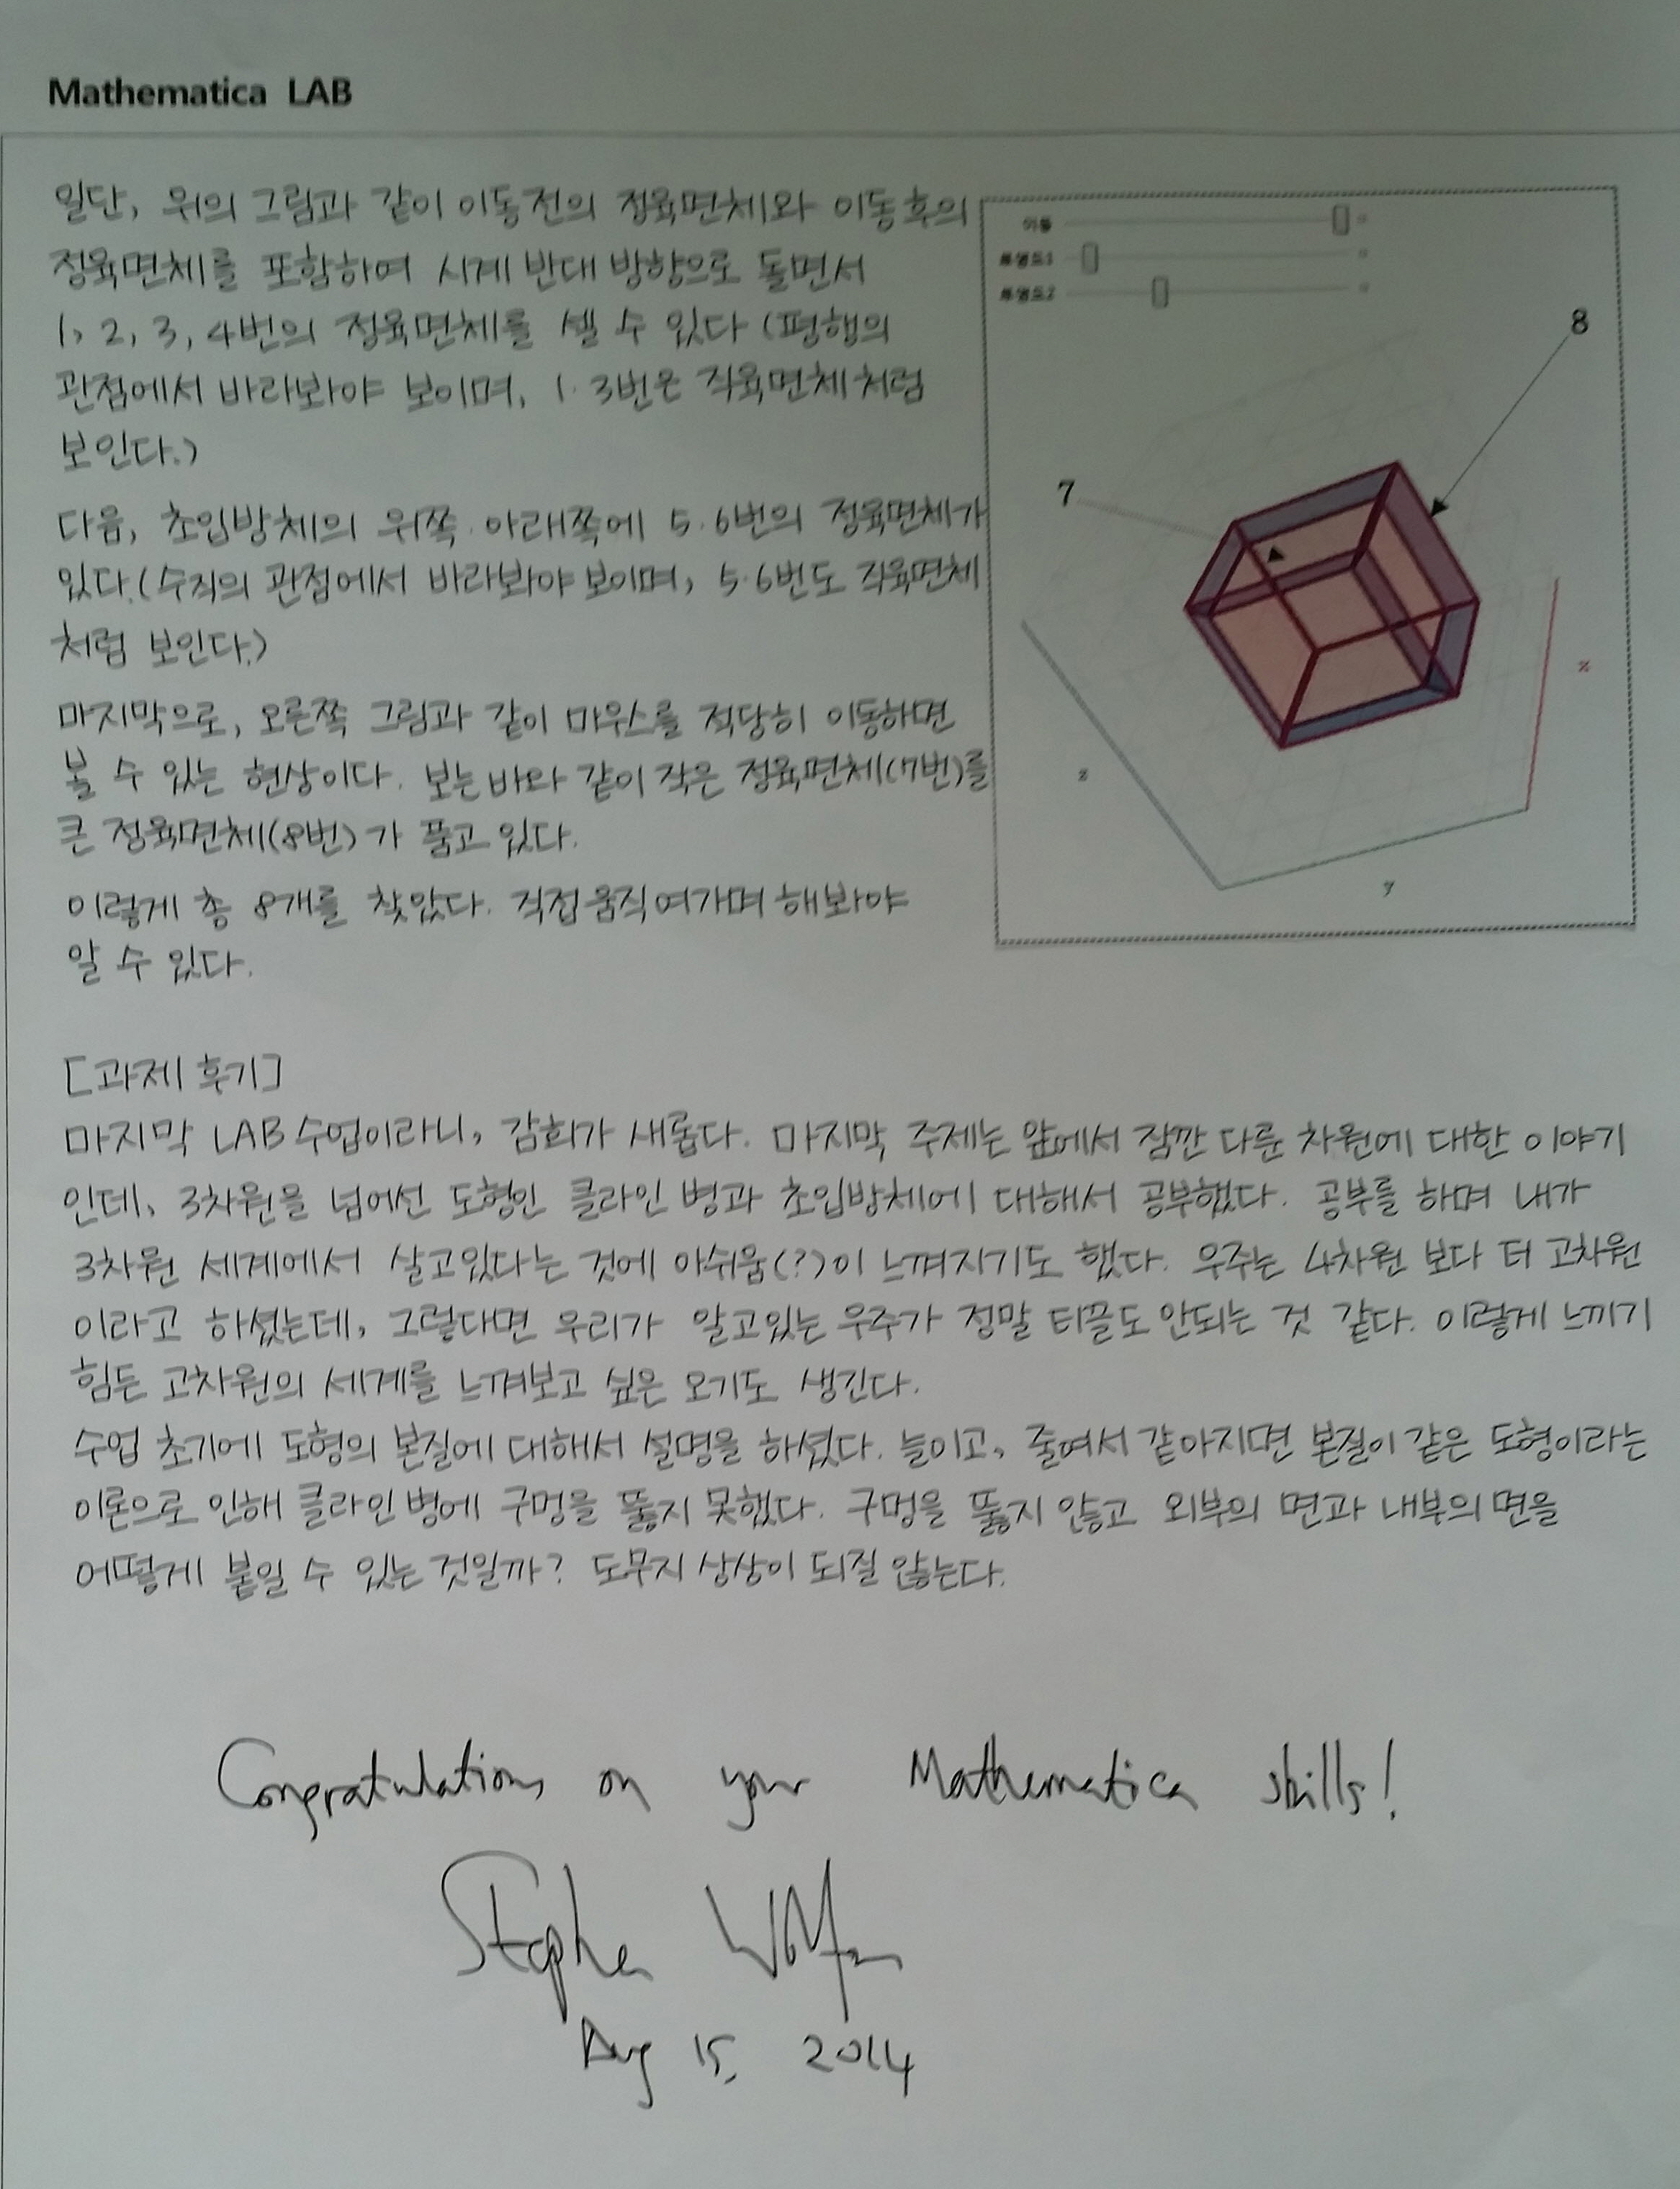 Mathematica LAB
일단, 위의 그림과 같이 이동전의 정육면체와 이동후의
정육면체를 포함하여 시계 반대 방향으로 돌면서
1, 2, 3, 4번의 정육면체를 셀 수 있다 (평행의
관점에서 바라봐야 보이며, 1·3번은 직육면체처럼
보인다.)
다음, 초입방체의 위쪽·아래쪽에 5·6번의 정육면체가
있다.(수직의 관점에서 바라봐야 보이며, 5·6번도 직육면체
처럼 보인다.)
마지막으로, 오른쪽 그림과 같이 마우스를 적당히 이동하면
볼 수 있는 현상이다. 보는 바와 같이 작은 정육면체(7번)를
큰 정육면체(8번)가 품고 있다.
이렇게 총 8개를 찾았다. 직접 움직여가며 해봐야
알 수 있다.
이동
투명도1
투명도2
8
7
z
x
y
[과제 후기]
마지막 LAB 수업이라니, 감회가 새롭다. 마지막 주제는 앞에서 잠깐 다룬 차원에 대한 이야기
인데, 3차원을 넘어선 도형인 클라인 병과 초입방체에 대해서 공부했다. 공부를 하며 내가
3차원 세계에서 살고있다는 것에 아쉬움(?)이 느껴지기도 했다. 우주는 4차원 보다 더 고차원
이라고 하셨는데, 그렇다면 우리가 알고있는 우주가 정말 티끌도 안되는 것 같다. 이렇게 느끼기
힘든 고차원의 세계를 느껴보고 싶은 오기도 생긴다.
수업 초기에 도형의 본질에 대해서 설명을 하셨다. 늘이고, 줄여서 같아지면 본질이 같은 도형이라는
이론으로 인해 클라인 병에 구멍을 뚫지 못했다. 구멍을 뚫지 않고 외부의 면과 내부의 면을
어떻게 붙일 수 있는 것일까? 도무지 상상이 되질 않는다.
Congratulations on your Mathematica skills!
Stephen Wolfram
Aug 15, 2014